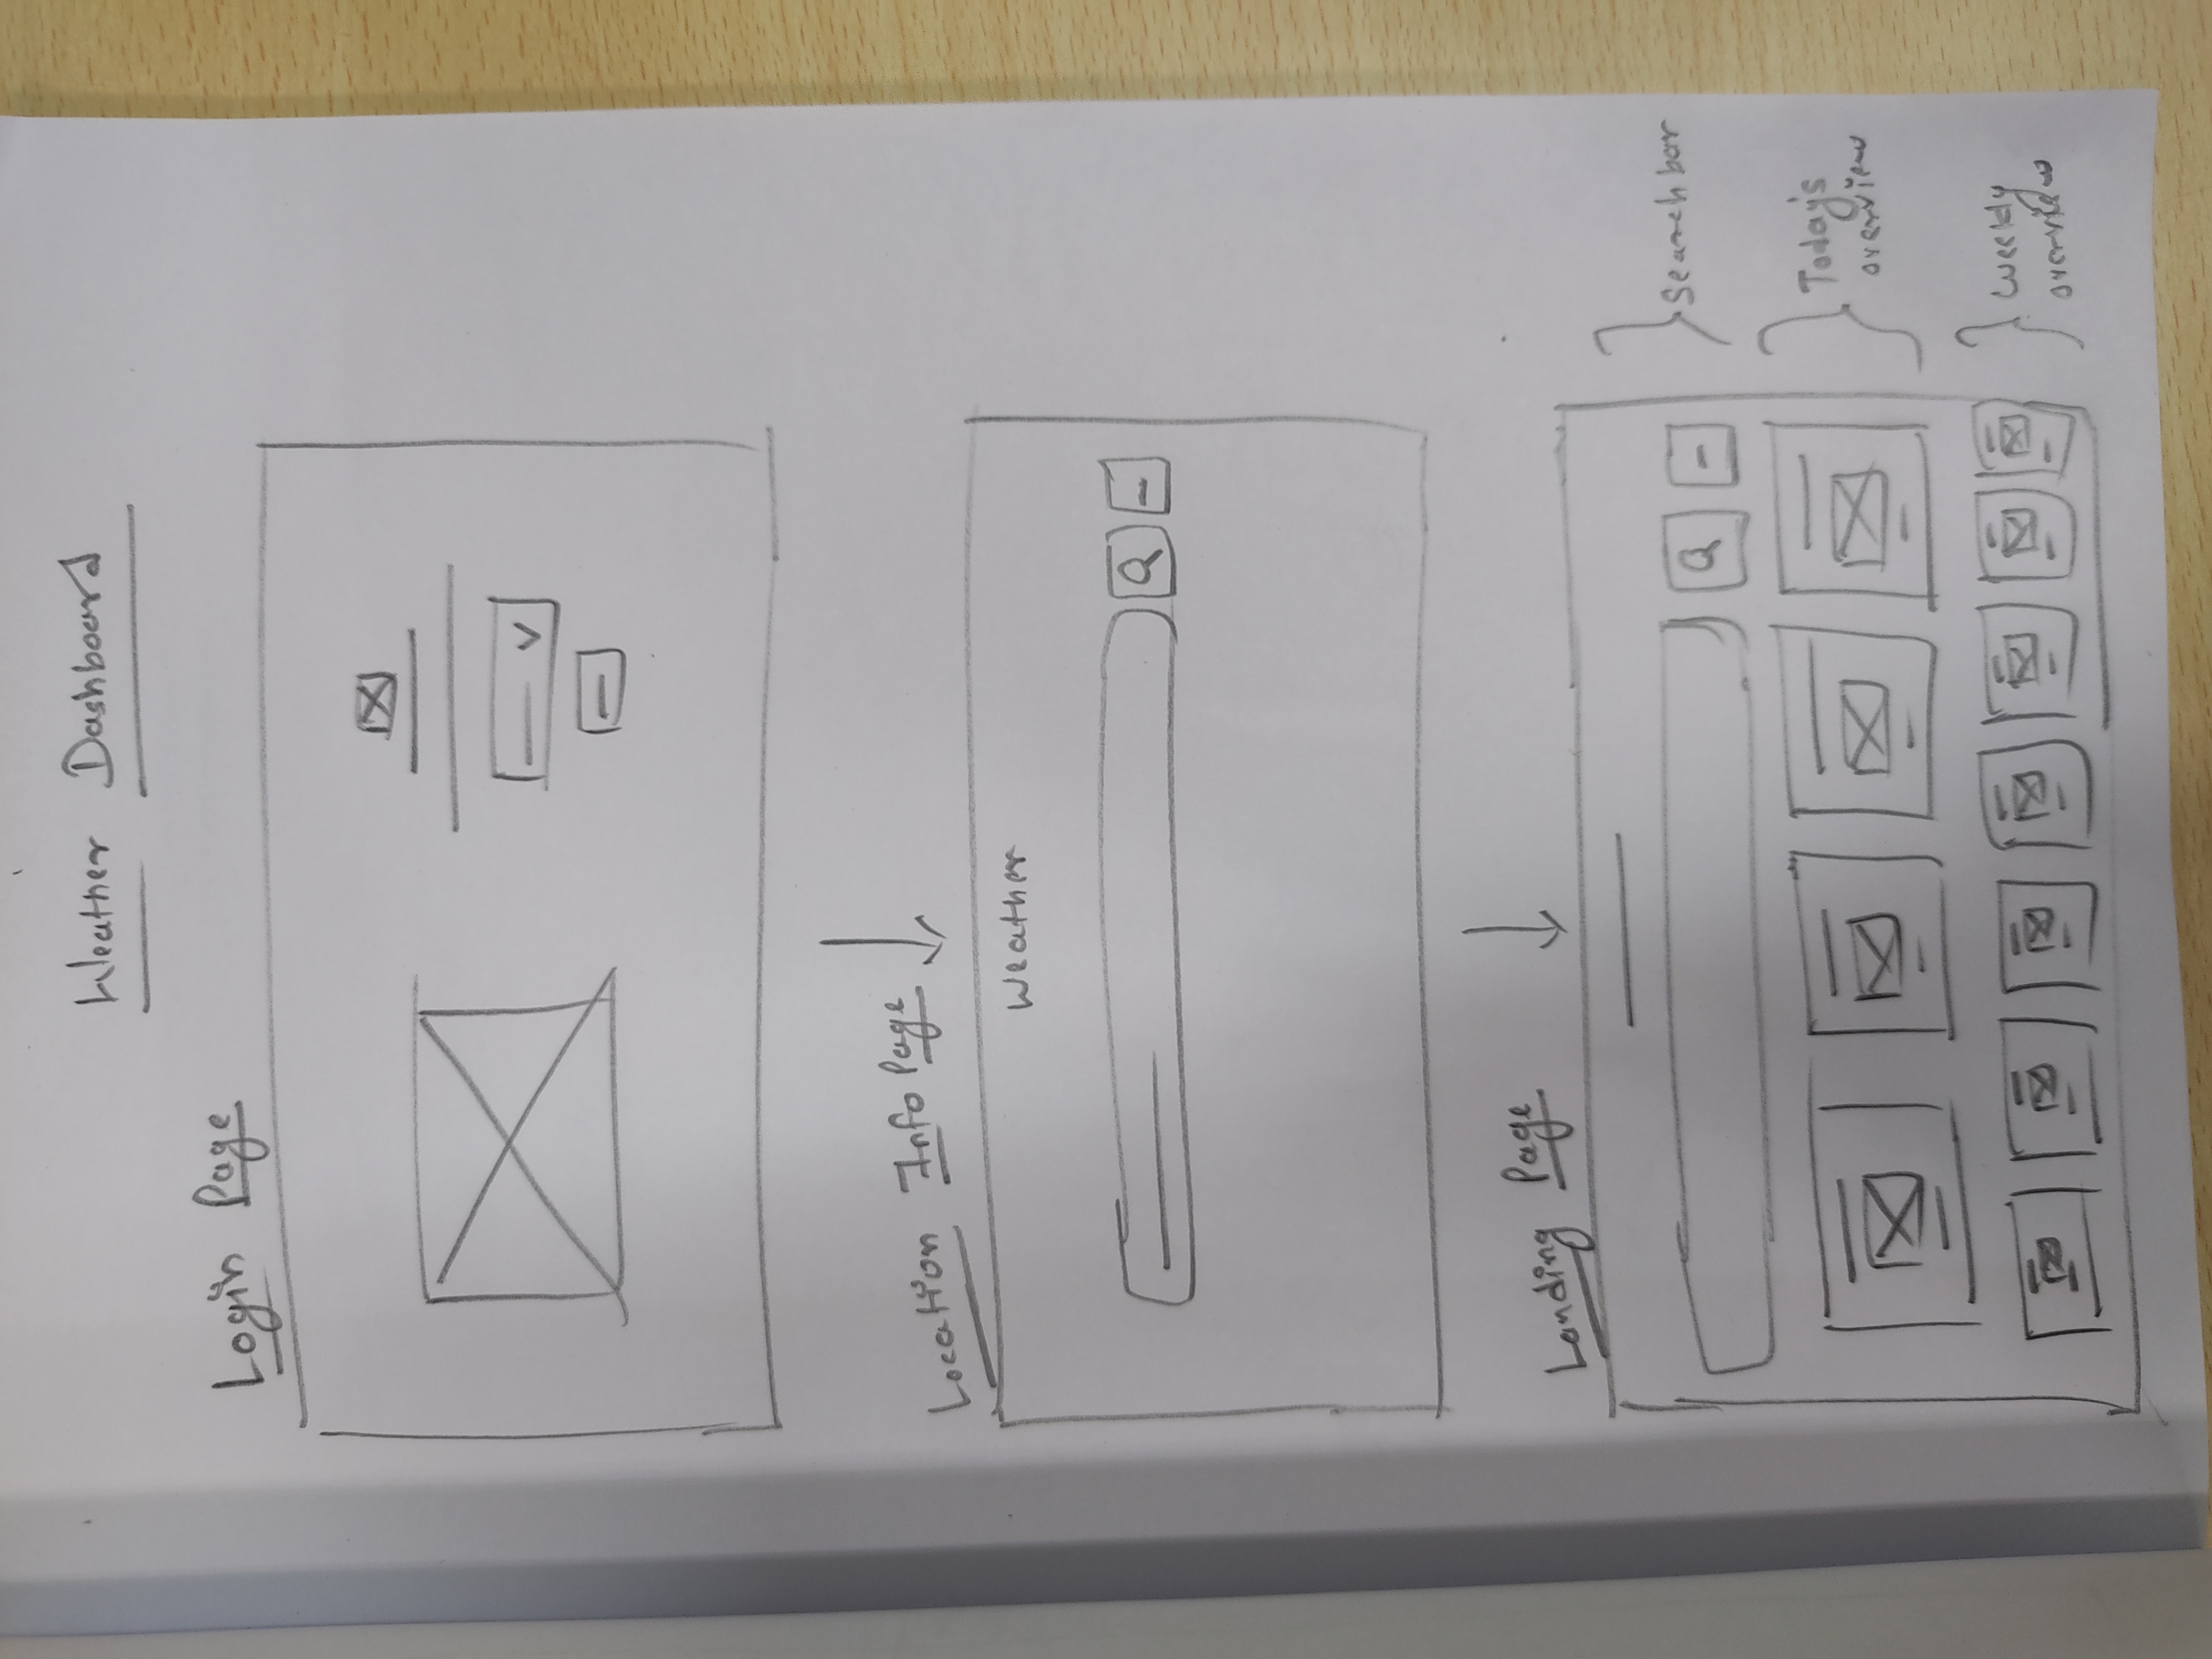 Weather Dashboard
Login Page
Location Info Page
Weather
Landing Page
Searchbar
Today's
overview
Weekly
overview